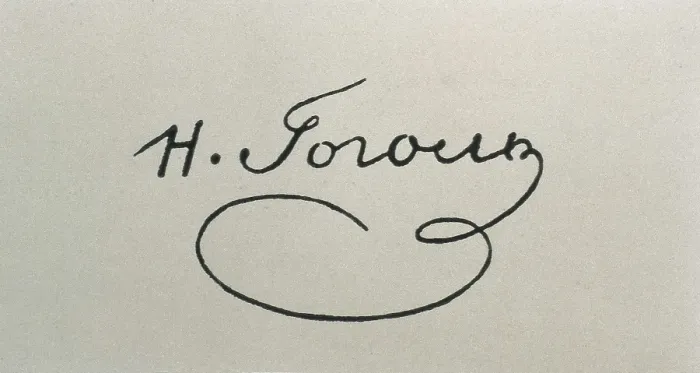 Н. Гоголь